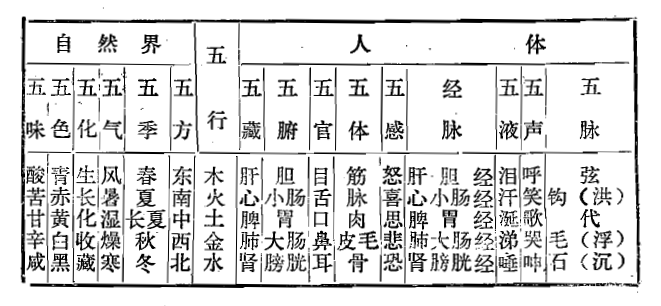 自然界 五行 人体
五味 五色 五化 五气 五季 五方 五藏 五腑 五官 五体 五感 经脉 五液 五声 五脉
酸 青 生 风 春 东 木 肝 胆 目 筋 怒 肝 胆 经 泪 呼 弦
苦 赤 长 暑 夏 南 火 心 小肠 舌 脉 喜 心 小肠 经 汗 笑 钩(洪)
甘 黄 化 湿 长夏 中 土 脾 胃 口 肉 思 脾 胃 经 涎 歌 代
辛 白 收 燥 秋 西 金 肺 大肠 鼻 皮毛 悲 肺 大肠 经 涕 哭 毛(浮)
咸 黑 藏 寒 冬 北 水 肾 膀胱 耳 骨 恐 肾 膀胱 经 唾 呻 石(沉)